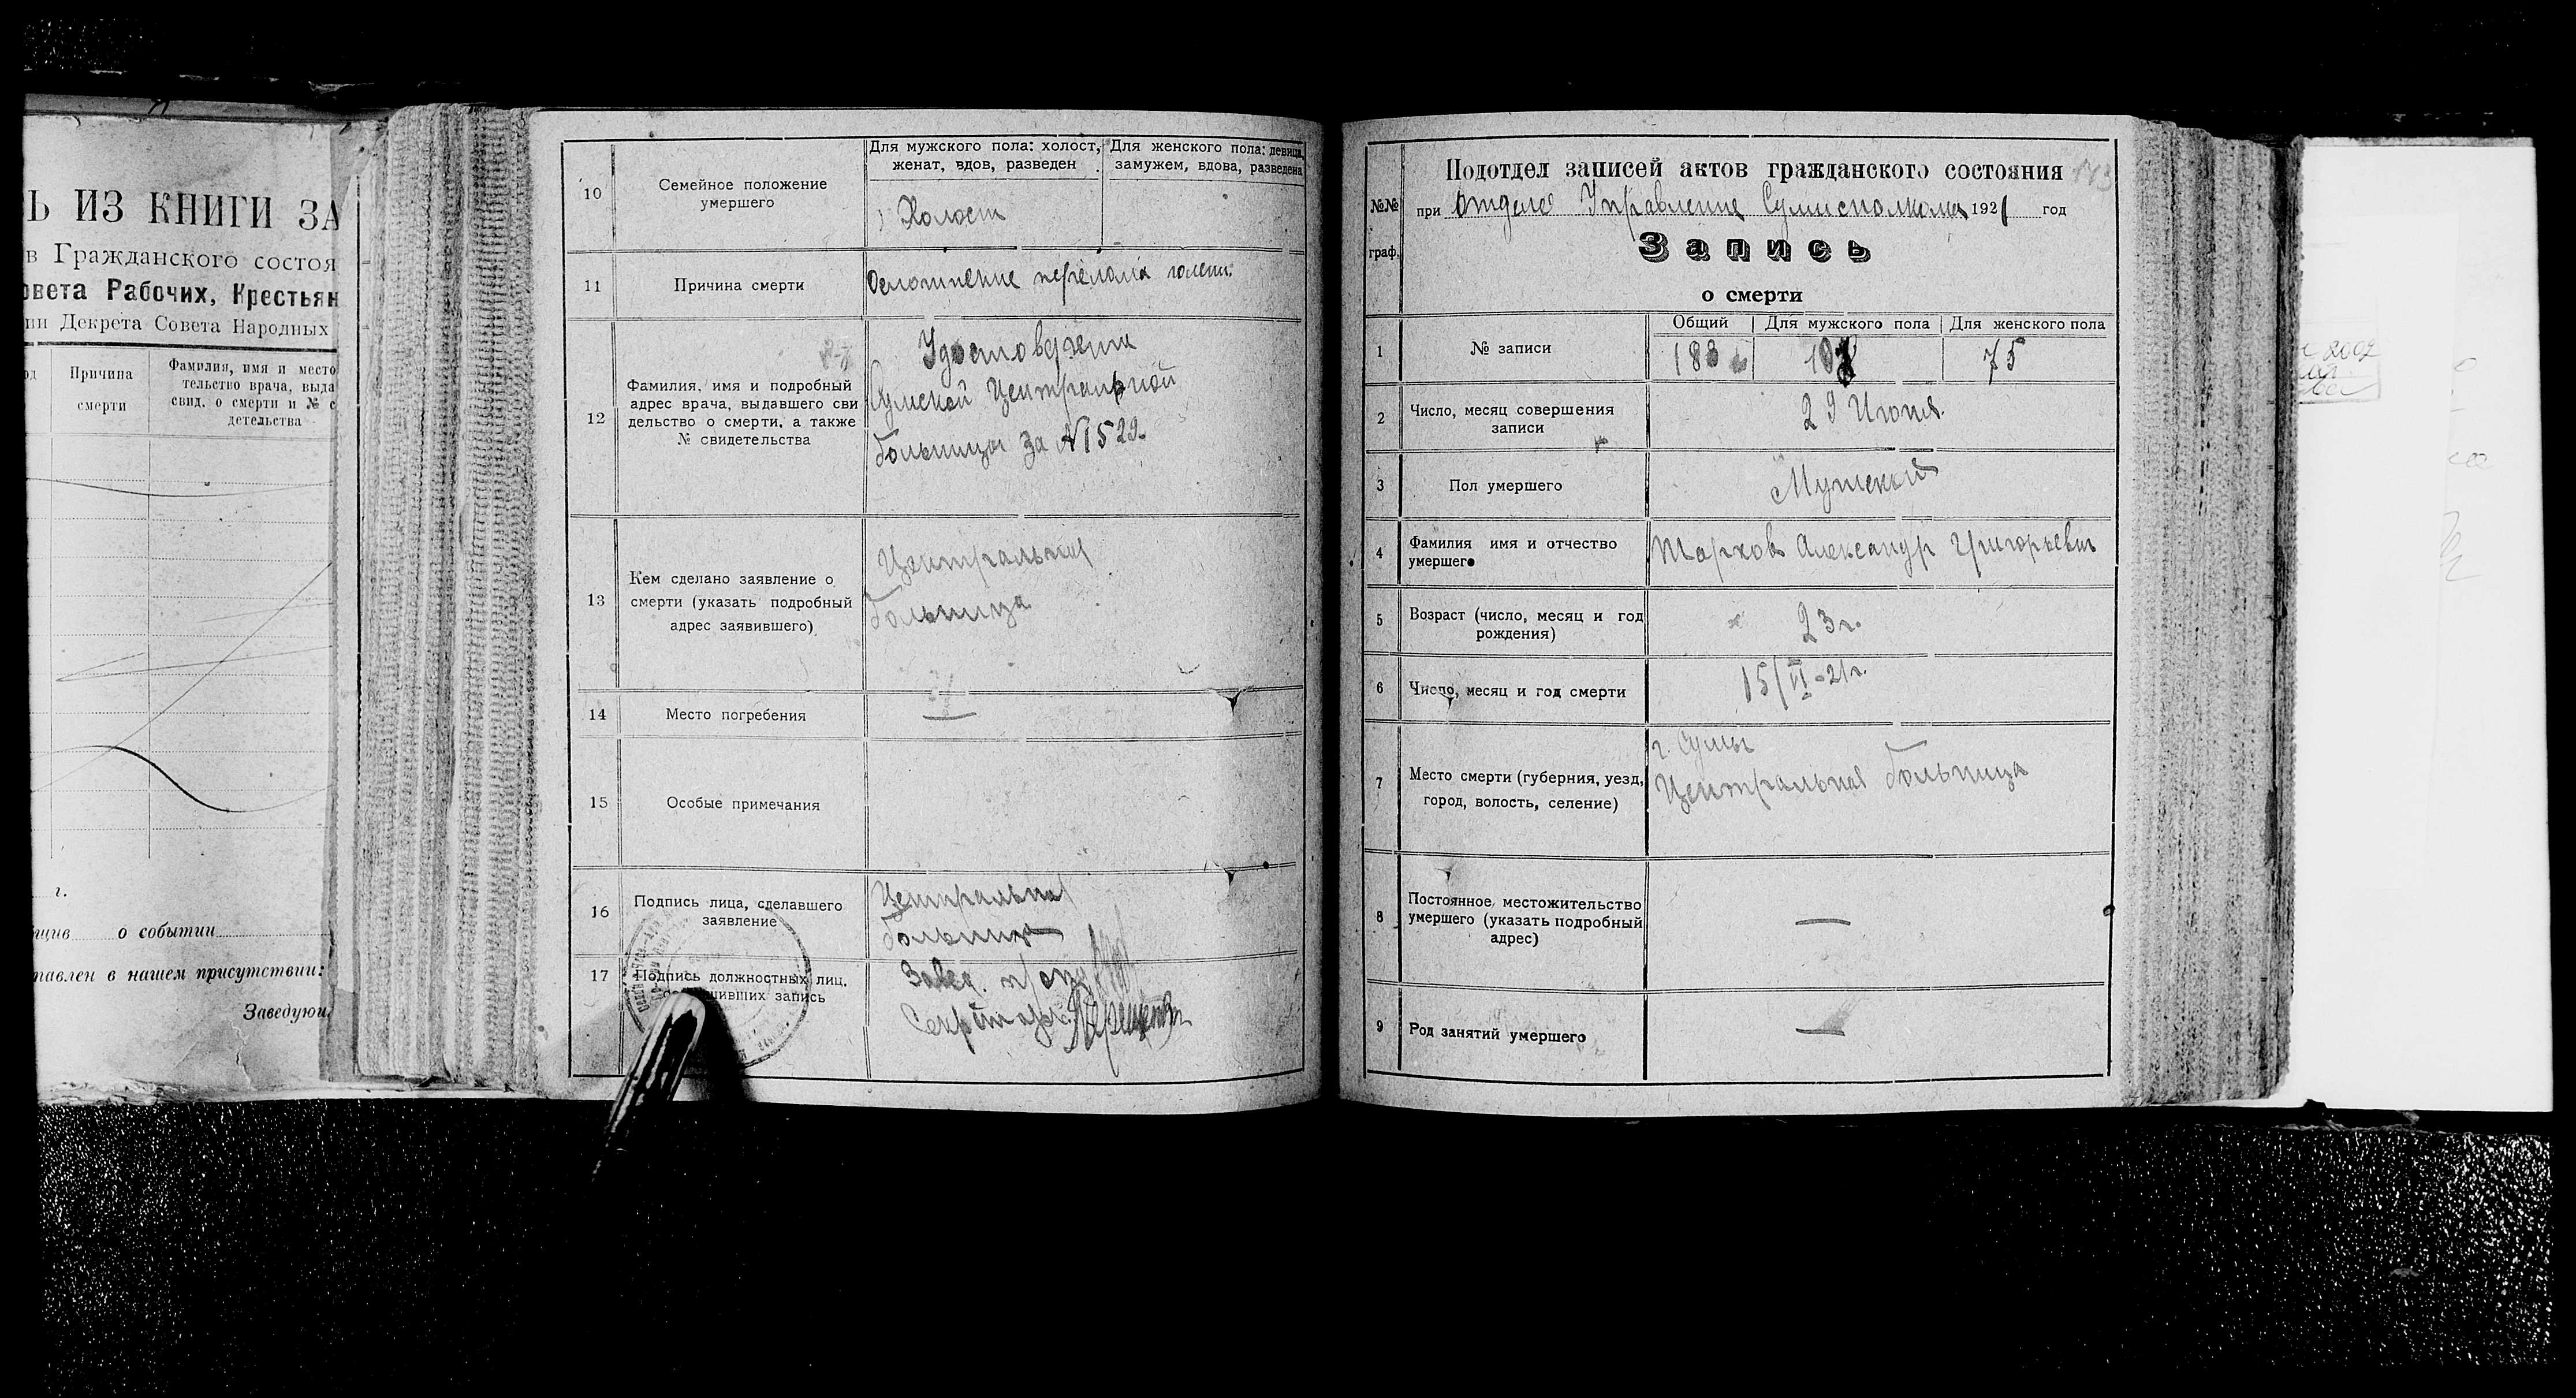 Ь ИЗ КНИГИ ЗА
в Гражданского состоя
овета Рабочих, Крестьян
ии Декрета Совета Народных
Причина смерти
Фамилия, имя и место
тельство врача, выда
свид. о смерти и № с
детельства
г.
о событии
тавлен в нашем присутствии:
Заведую
10
Семейное положение
умершего
Для мужского пола: холост,
женат, вдов, разведен
Для женского пола: девица,
замужем, вдова, разведена
Холост
11
Причина смерти
Осложнение перелома голени.
12
Фамилия, имя и подробный
адрес врача, выдавшего сви
дельство о смерти, а также
№ свидетельства
Удостоверение
Сумской Центральной
больницы за №1529.
13
Кем сделано заявление о
смерти (указать подробный
адрес заявившего)
Центральная
больница
14
Место погребения
15
Особые примечания
16
Подпись лица, сделавшего
заявление
Центральная
больница
17
Подпись должностных лиц,
шивших запись
Завед.
Секретарь
№№
граф.
Подотдел записей актов гражданского состояния
при Отделе Управления Сумисполкома 1921 год
Запись
о смерти
1
№ записи
Общий
Для мужского пола
Для женского пола
183
75
2
Число, месяц совершения
записи
29 Июня.
3
Пол умершего
Мужской
4
Фамилия имя и отчество
умершего
Шарков Александр Григорьевич
5
Возраст (число, месяц и год
рождения)
23 г.
6
Число, месяц и год смерти
15/VI-21г.
7
Место смерти (губерния, уезд,
город, волость, селение)
г. Сумы
Центральная больница
8
Постоянное местожительство
умершего (указать подробный
адрес)
—
9
Род занятий умершего
—